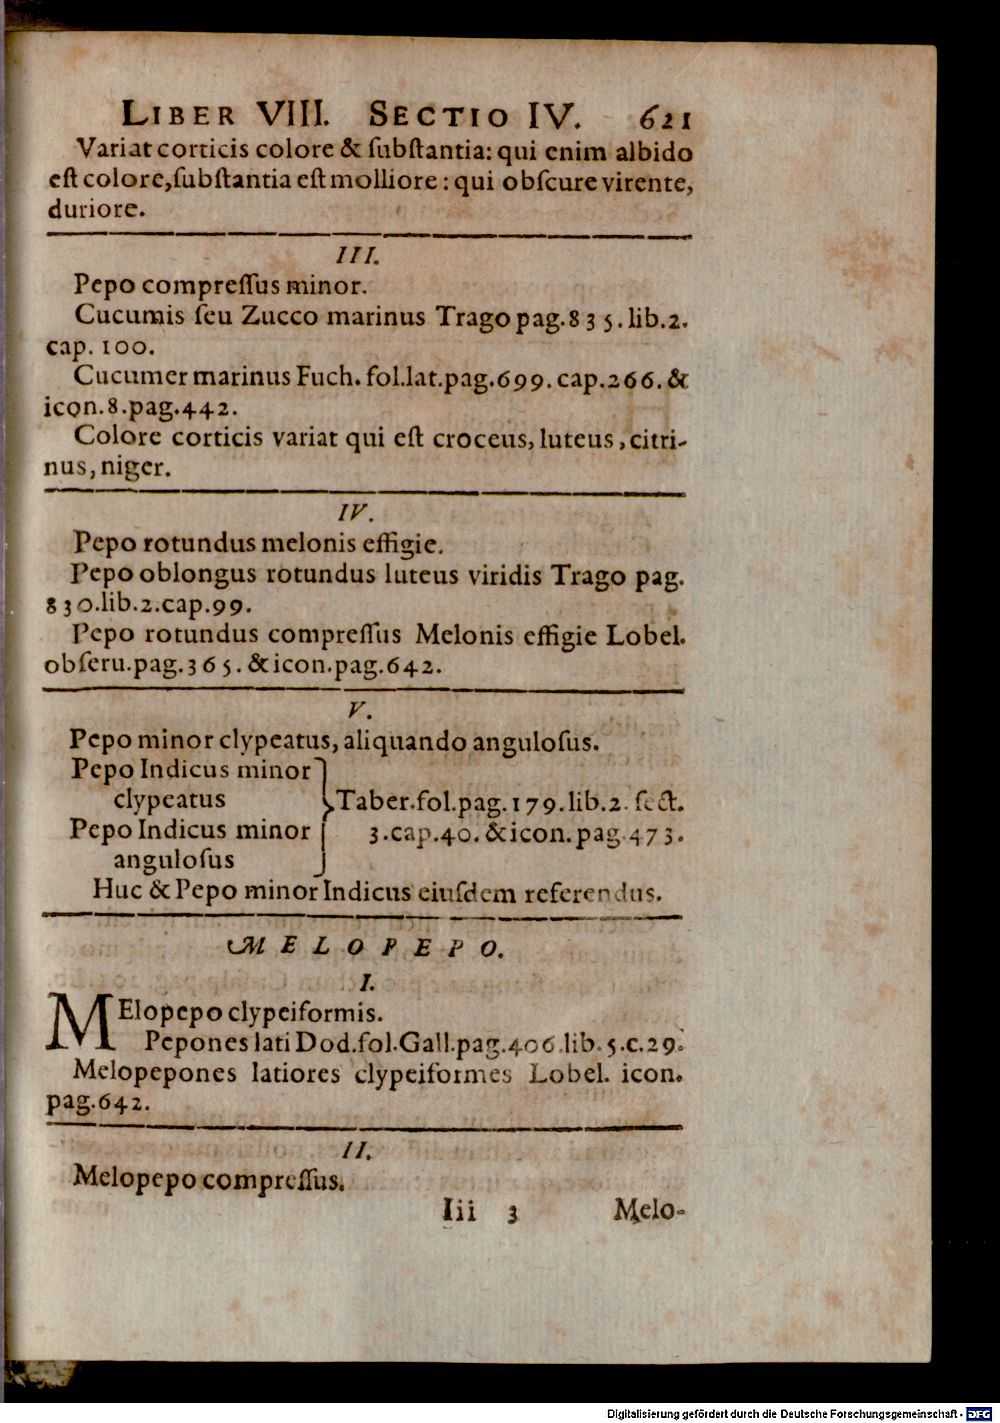 LIBER VIII. SECTIO IV. 621
Variat corticis colore & ſubſtantia: qui enim albido
eſt colore, ſubſtantia eſt molliore: qui obſcure virente,
duriore.
III.
Pepo compreſſus minor.
Cucumis ſeu Zucco marinus Trago pag. 835. lib. 2.
cap. 100.
Cucumer marinus Fuch. fol. lat. pag. 699. cap. 266. &
icon. 8. pag. 442.
Colore corticis variat qui eſt croceus, luteus, citri-
nus, niger.
IV.
Pepo rotundus melonis effigie.
Pepo oblongus rotundus luteus viridis Trago pag.
830. lib. 2. cap. 99.
Pepo rotundus compreſſus Melonis effigie Lobel.
obſeru. pag. 365. & icon. pag. 642.
V.
Pepo minor clypeatus, aliquando anguloſus.
Pepo Indicus minor
clypeatus
Taber. fol. pag. 179. lib. 2. ſect.
Pepo Indicus minor
3. cap. 40. & icon. pag. 473.
anguloſus
Huc & Pepo minor Indicus eiuſdem referendus.
MELOPEPO.
I.
MElopepo clypeiformis.
Pepones lati Dod. fol. Gall. pag. 406. lib. 5. c. 29.
Melopepones latiores clypeiformes Lobel. icon.
pag. 642.
II.
Melopepo compreſſus.
Iii 3 Melo-
Digitalisierung gefördert durch die Deutsche Forschungsgemeinschaft - DFG